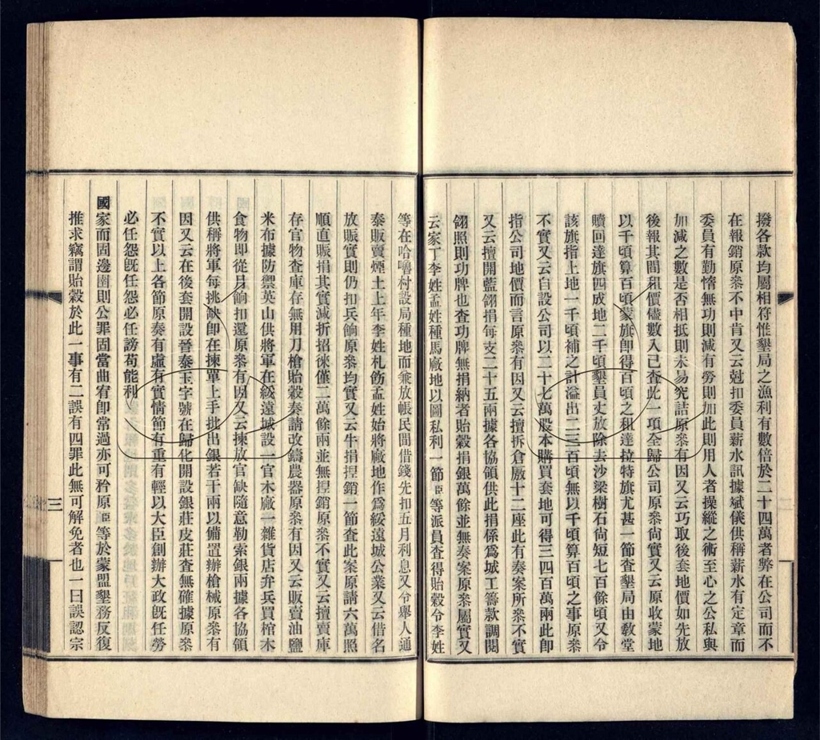 撥各款均屬相符惟墾局之漁利有數倍於二十四萬者弊在公司而不
在報銷原叅不中肯又云尅扣委員薪水訊據斌儀供稱薪水有定章而
委員有勤惰無功則減有勞則加此則用人者操縱之術至心之公私與
加減之數是否相抵則未易究詰原叅有因又云巧取後套地價如先放
後報其間租價儘數入己查此一項全歸公司原叅尙實又云原收蒙地
以千頃算百頃蒙旗卽得百頃之租達拉特旗尤甚一節查墾局由敎堂
贖回達旗四成地二千頃墾員丈放除去沙梁樹石尙短七百餘頃又令
該旗指上地一千頃補之計溢出二三百頃無以千頃算百頃之事原叅
不實又云自設公司以二十七萬股本購買套地可得三四百萬兩此卽
指公司地價而言原叅有因又云擅拆倉廒十二座此有奏案所叅不實
又云擅開藍翎捐每支二十五兩據各協領供此捐係爲城工籌款調閱
翎照則功牌也查功牌無捐納者貽穀捐銀萬餘並無奏案原叅屬實又
云家丁李姓孟姓種馬廠地以圖私利一節臣等派員查得貽穀令李姓
等在哈嚕村設局種地而兼放帳民間借錢先扣五月利息又令舉人通
泰販賣煙土上年李姓札飭孟姓始將廠地作爲綏遠城公業又云借名
放賑實則仍扣兵餉原叅均實又云牛捐捏銷一節查此案原請六萬照
順直賑捐其實減折招徠僅二萬餘兩並無捏銷原叅不實又云擅賣庫
存官物查庫存無用刀槍貽穀奏請改鑄農器原叅有因又云販賣油鹽
米布據防禦英山供將軍在綏遠城設一官木廠一雜貨店弁兵買棺木
食物卽從月餉扣還原叅有因又云揀放官缺隨意勒索銀兩據各協領
供稱將軍每挑缺卽在揀單上手批出銀若干兩以備置辦槍械原叅有
因又云在後套開設晉泰玉字號在歸化開設銀莊皮莊查無確據原叅
不實以上各節原奏有虛有實情節有重有輕以大臣創辦大政旣任勞
必任怨旣任怨必任謗苟能利
國家而固邊圉則公罪固當曲宥卽當過亦可矜原臣等於蒙盟墾務反復
推求竊謂貽穀於此一事有二誤有四罪此無可解免者也一曰誤認宗
三